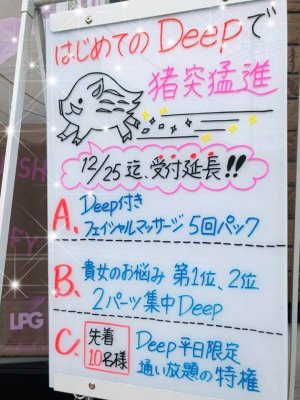 はじめてのDeepで
猪突猛進
12/25迄、受付延長!!
A. Deep付き
フェイシャルマッサージ 5回パック
B. 貴女のお悩み 第1位、2位
2パーツ集中Deep
C. 先着
10名様
Deep平日限定
通い放題の特権
LPG